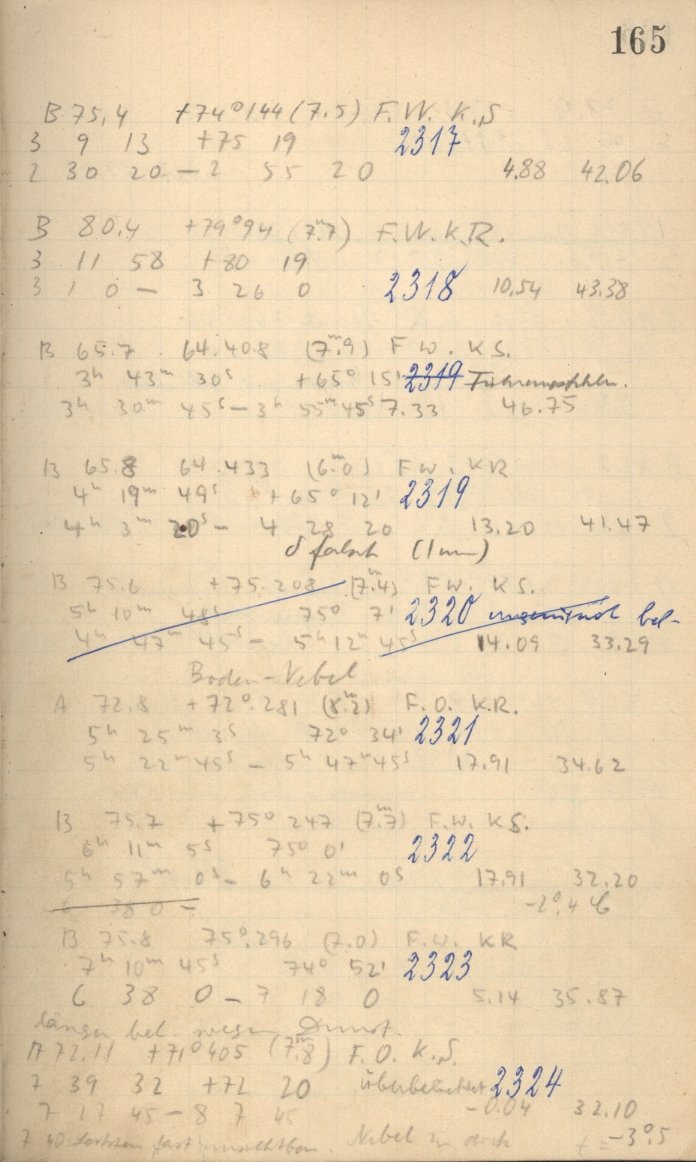 165
B 75,4 +74° 144 (7.5) F. W. K.S
3 9 13 +75 19 2317
2 30 20 – 2 55 20 4.88 42.06
B 80.4 +79° 94 (7.ᵐ7) F.W.K.R.
3 11 58 +80 19
3 1 0 – 3 26 0 2318 10,54 43.38
B 65.7 64.408 (7.ᵐ9) F W. KS.
3ʰ 43ᵐ 30ˢ +65° 15' 2319
3ʰ 30ᵐ 45ˢ – 3ʰ 55ᵐ 45ˢ 7.33 46.75
B 65.8 64.433 (6.ᵐ0) F W. KR
4ʰ 19ᵐ 49ˢ +65° 12' 2319
4ʰ 3ᵐ 20ˢ – 4 28 20 13.20 41.47
δ falsch (1mm)
B 75.6 +75.208 (7.ᵐ4) F W. KS.
5ʰ 10ᵐ 48ˢ 75° 7' 2320 ungenügend bel-
4ʰ 47ᵐ 45ˢ – 5ʰ 12ᵐ 45ˢ 14.09 33.29
Boden-Nebel
A 72.8 +72°.281 (8.ᵐ2) F.O. KR.
5ʰ 25ᵐ 3ˢ 72° 34' 2321
5ʰ 22ᵐ 45ˢ – 5ʰ 47ᵐ 45ˢ 17.91 34.62
B 75.7 +75° 247 (7.ᵐ7) F.W. KS.
6ʰ 11ᵐ 5ˢ 75° 0' 2322
5ʰ 57ᵐ 0ˢ – 6ʰ 22ᵐ 0ˢ 17.91 32.20
-2°,4 C
B 75.8 75°.296 (7.0) F.W. KR
7ʰ 10ᵐ 45ˢ 74° 52' 2323
6 38 0 – 7 18 0 5.14 35.87
länger bel. wegen Dunst.
A 72.11 +71°405 (7.ᵐ8) F.O. K.S.
7 39 32 +72 20 2324
7 27 45 – 8 7 45 -0.04 32.10
7 40 fast unsichtbar. Nebel zu dick t = -3°.5